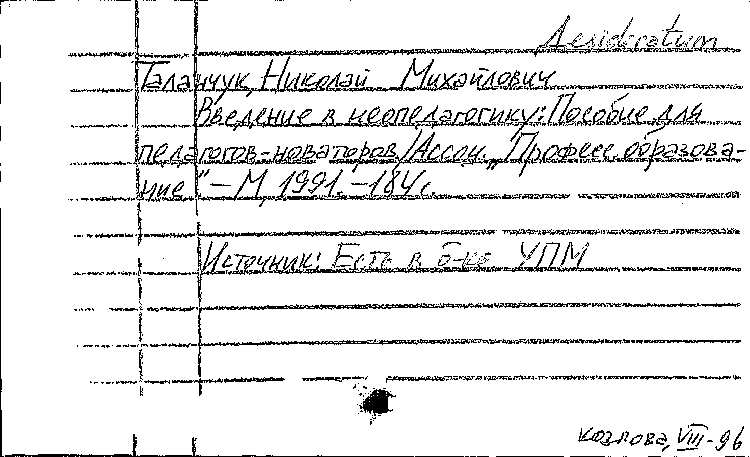 Desideratum
Таланчук, Николай Михайлович
Введение в неопедагогику: Пособие для
педагогов-новаторов/Ассоц. „Професс. образова-
ние". – М, 1991. – 184 с.
Источник: Есть в б-ке УПМ
Козлова, VIII-96